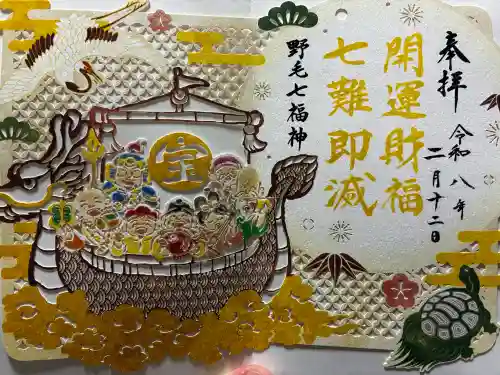 奉拝
令和八年
二月十二日
開運財福
七難即減
野毛七福神
宝